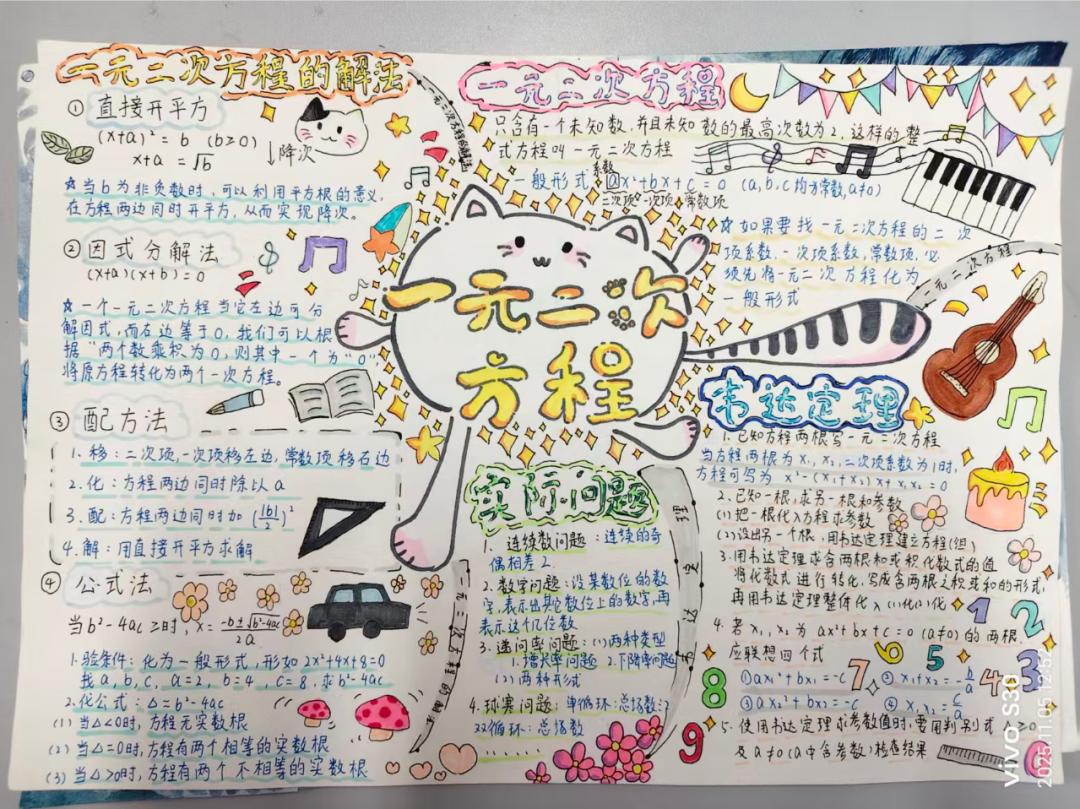 一元二次方程的解法
① 直接开平方
(x+a)² = b (b≥0)
x+a = √b ↓降次
☆当b为非负数时，可以利用平方根的意义，
在方程两边同时开平方，从而实现降次。
② 因式分解法
(x+a)(x+b)=0
☆一个一元二次方程当它左边可分
解因式，而左边等于0，我们可以根
据“两个数乘积为0，则其中一个为“0”
将原方程转化为两个一次方程。
③ 配方法
1.移：二次项，一次项移左边，常数项移右边
2.化：方程两边同时除以a
3.配：方程两边同时加(|b|/2)²
4.解：用直接开平方求解
④ 公式法
当b²-4ac≥时，x=(-b±√b²-4ac)/2a
1.验条件：化为一般形式，形如2x²+4x+8=0
找a，b，c，a=2，b=4，c=8，求b²-4ac
2.化公式：△=b²-4ac
(1)当△<0时，方程无实数根
(2)当△=0时，方程有两个相等的实数根
(3)当△>0时，方程有两个不相等的实数根
一元二次方程的解法
一元二次
方程
一元二次方程
只含有一个未知数，并且未知数的最高次数为2，这样的整
式方程叫一元二次方程
系数
一般形式：ax²+bx+c=0 (a,b,c均为常数,a≠0)
二次项 一次项 常数项
☆如果要找一元二次方程的二次
项系数，一次项系数，常数项，必
须先将一元二次方程化为
一般形式
一元二次方程
韦达定理
1.已知方程两根写一元二次方程
当方程两根为x₁,x₂,二次项系数为1时，
方程可写为 x²-(x₁+x₂)x+x₁x₂=0
2.已知一根，求另一根和参数
(1)把一根代入方程求参数
(2)设出另一个根，用韦达定理建立方程(组)
3.用韦达定理求含两根和或积代数式的值
将代数式进行转化，写成含两根之积或和的形式，
再用韦达定理整体代入
4.若x₁,x₂为ax²+bx+c=0(a≠0)的两根，
应联想四个式
①ax₁²+bx₁=-c ②x₁+x₂=-b/a
③ax₂²+bx₂=-c ④x₁x₂=c/a
5.使用韦达定理求参数值时，要用判别式 ≥0
及a≠0(a中含参数)检查结果
1 2 3 4 5 6 7 8 9
实际问题
1.连续数问题：连续的奇
偶相差2.
2.数字问题：设某数位的数
字，表示出其它数位上的数字，再
表示这个几位数
3.递向率问题：(1)两种类型
1.增长率问题 2.下降率问题
(2)两种形式
4.球赛问题：单循环：总场数：
双循环：总场数
一元二次方程的解法
韦达定理
vivo S30
2025.11.05 12:52